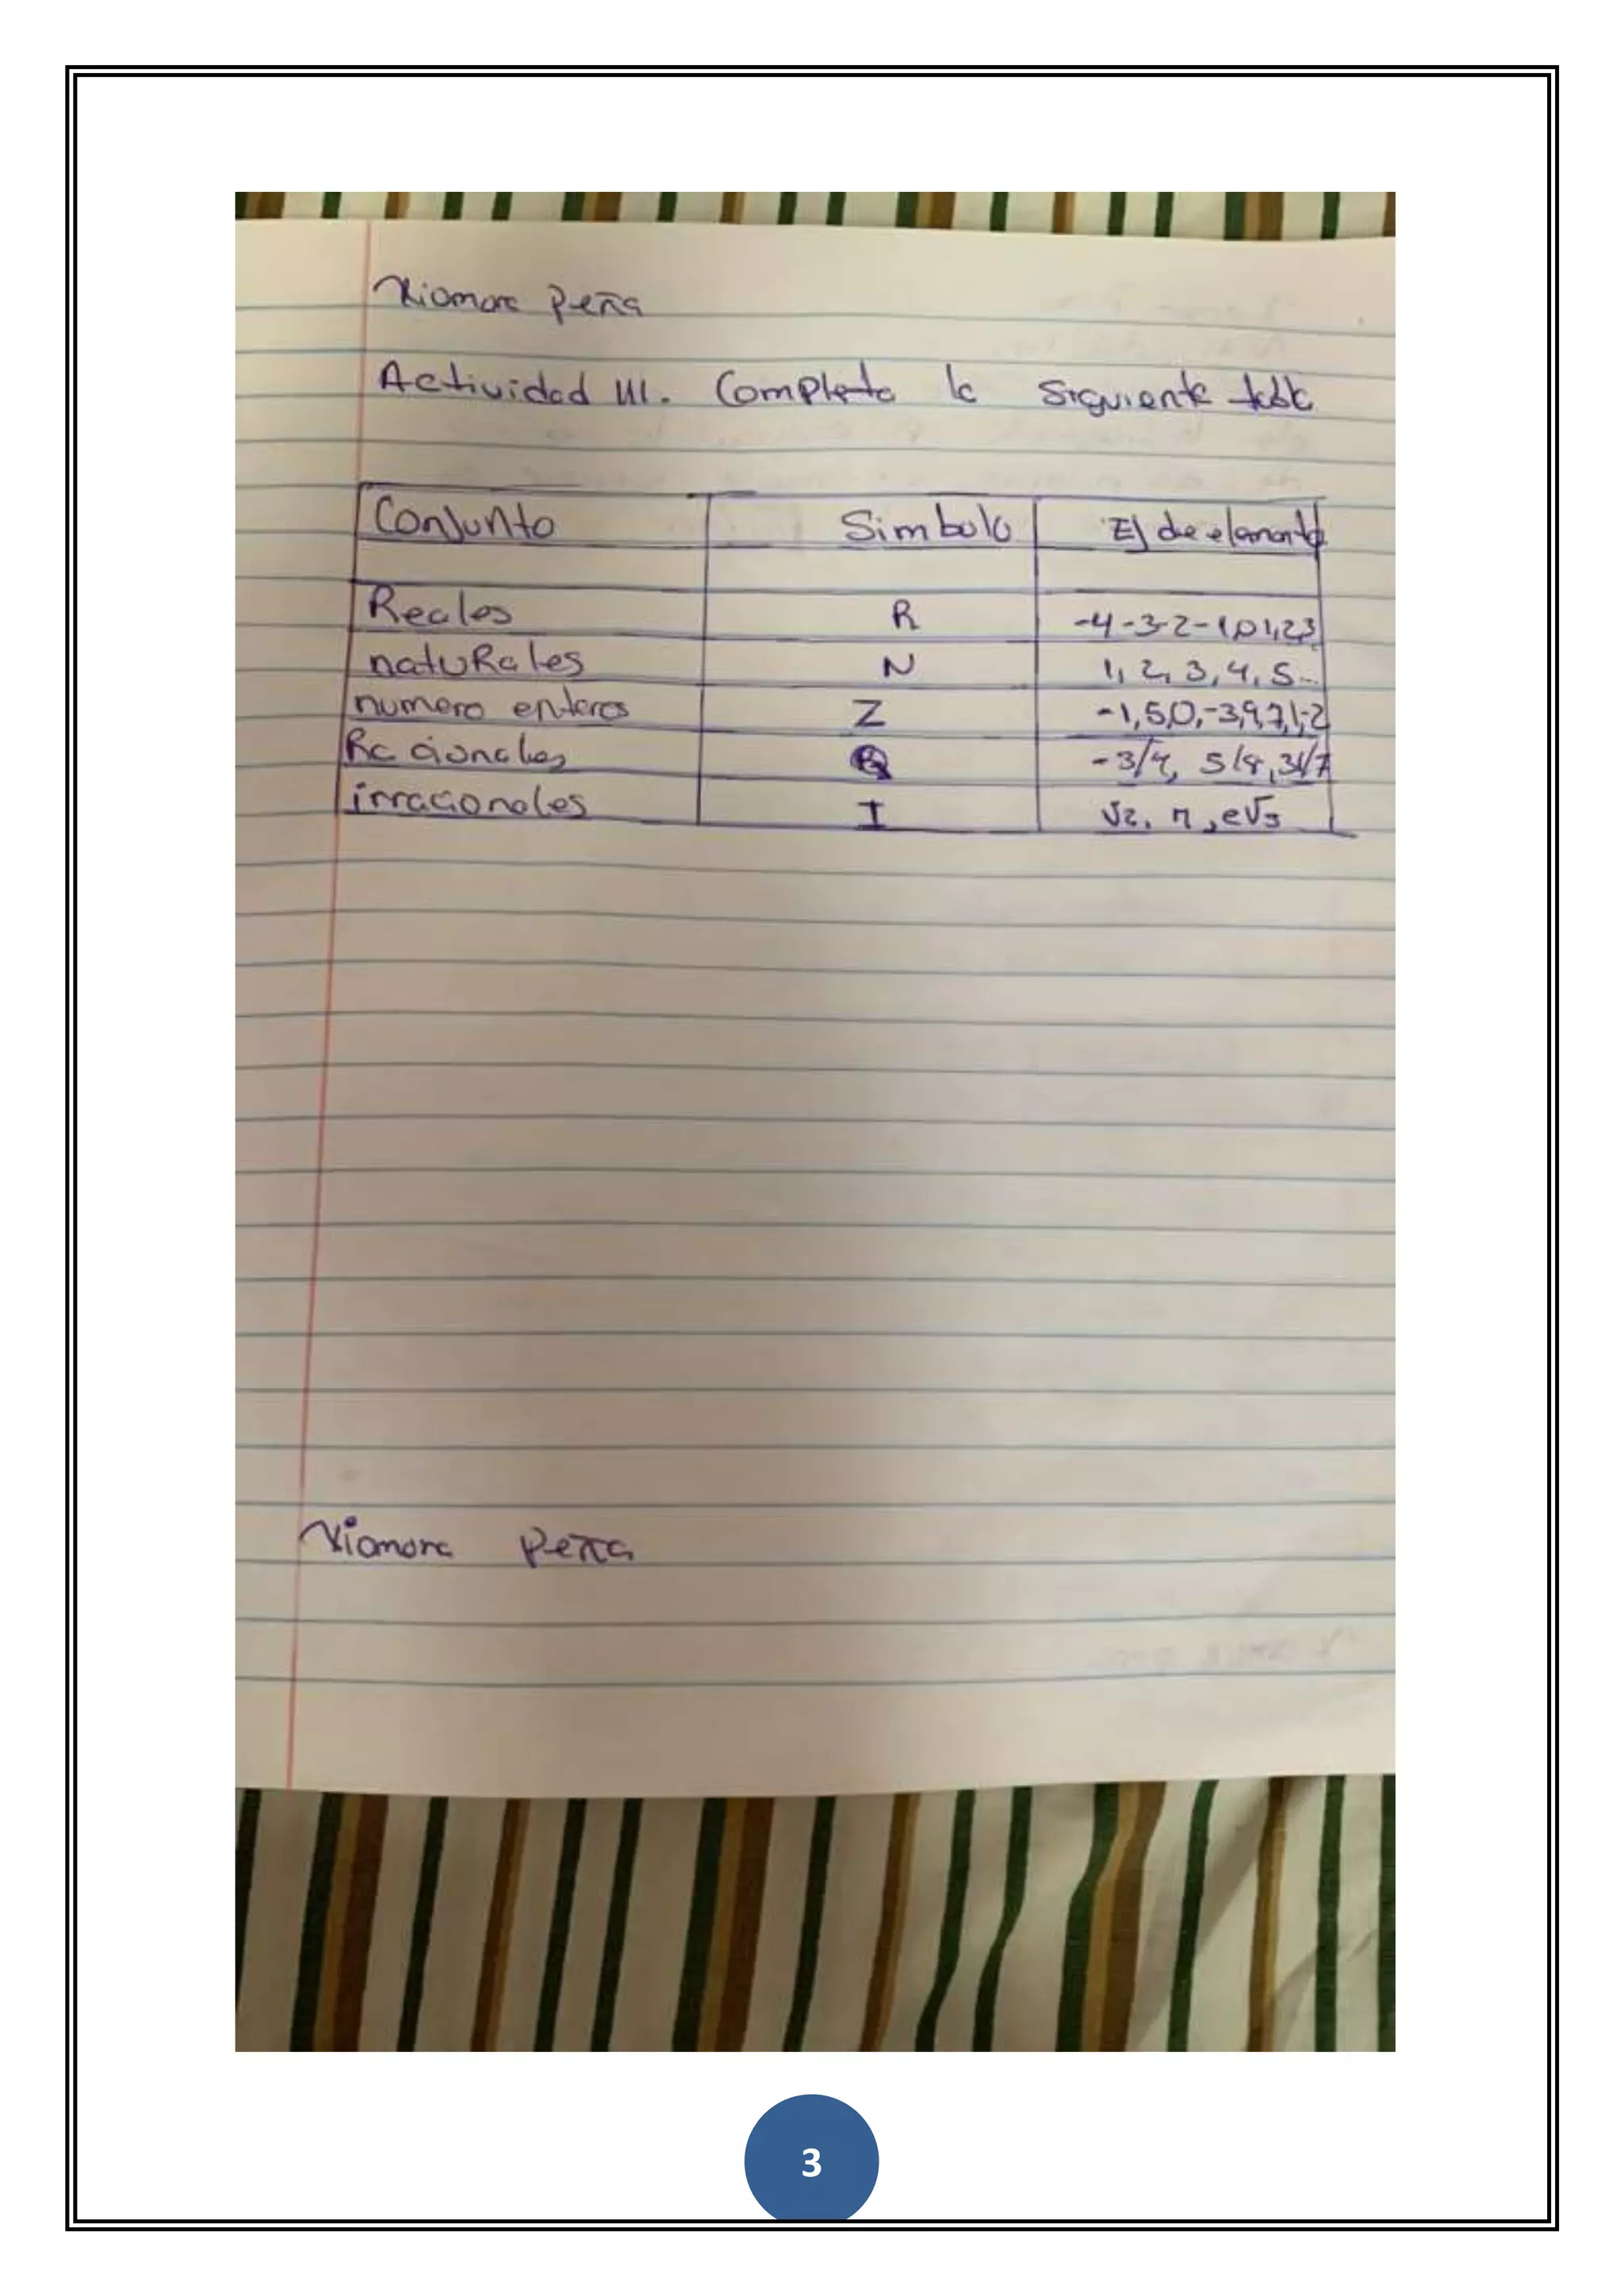 Xiomara Peña
Actividad III. Completa la siguiente tabla
Conjunto Simbolo Ej de elemento
Reales R -4 -3 -2 -1,0 1,2,3
natuRales N 1, 2, 3, 4, 5...
numero enteros Z -1,5,0,-3,9,7,1,-2
Racionales Q -3/4, 5/8, 31/7
irracionales I √2, π, e√3
Xiomara Peña
3